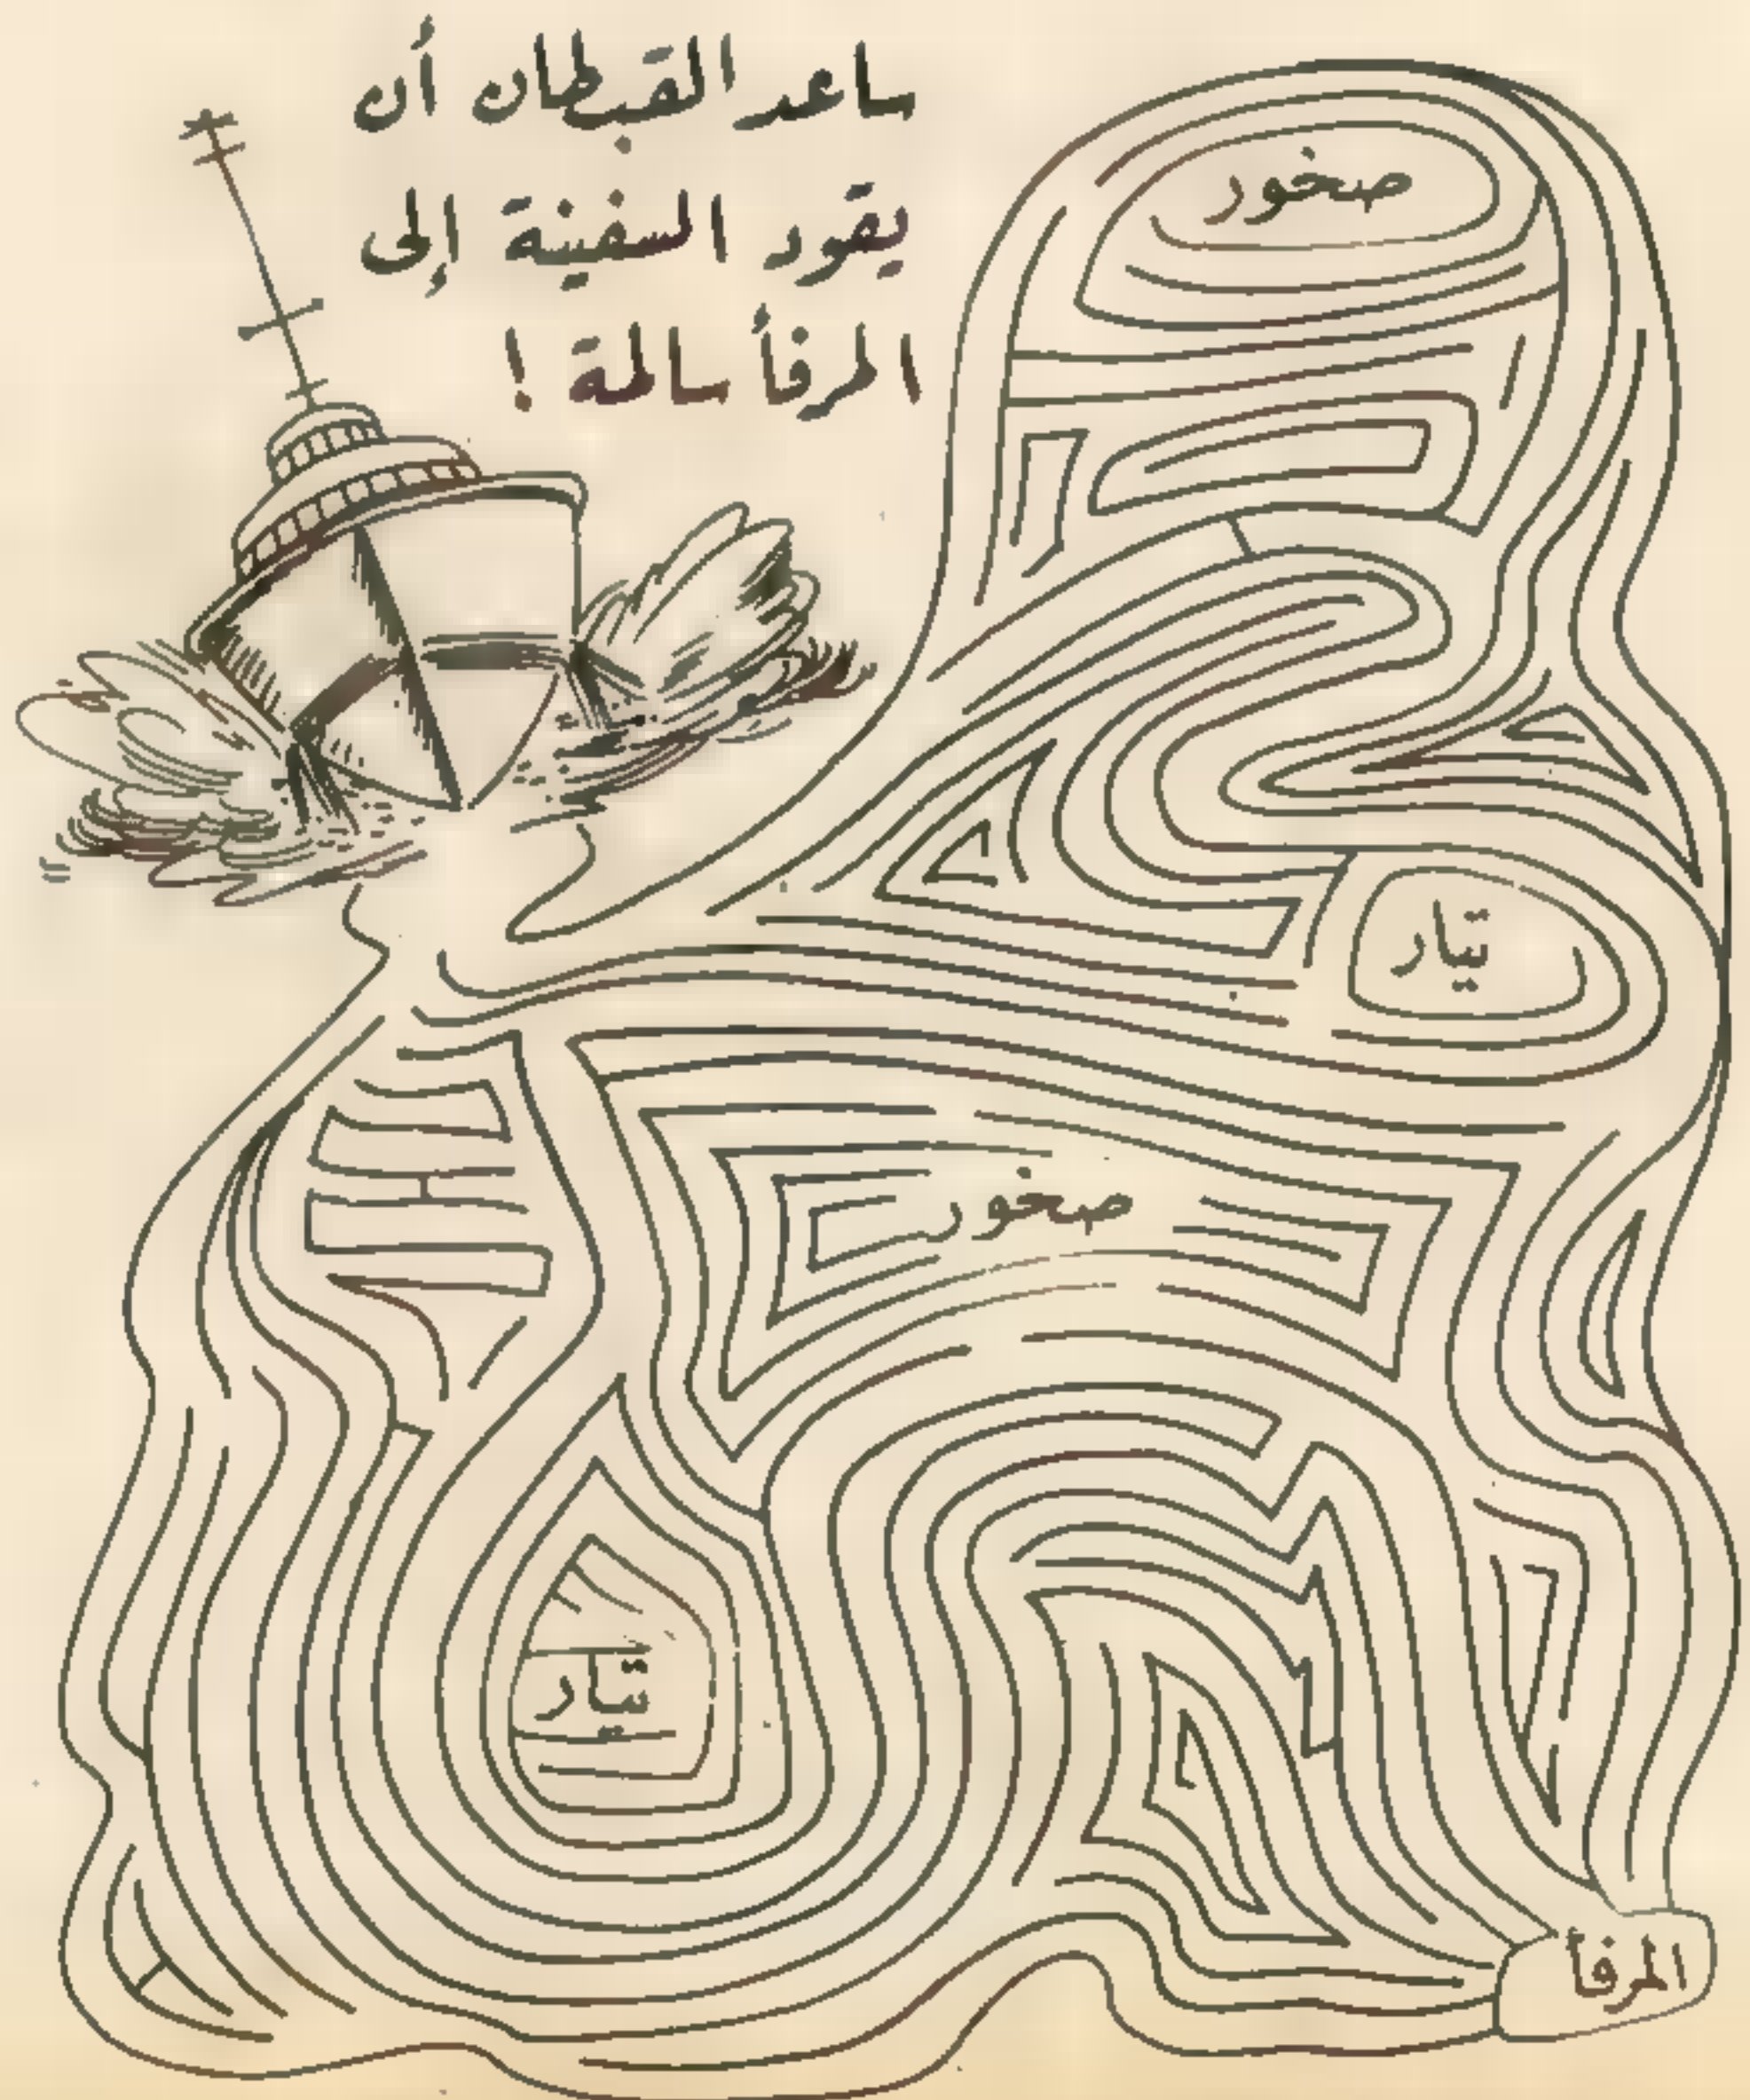 ساعد القبطان أن
يقود السفينة إلى
المرفأ سالمة !
صخور
تيّار
صخور
تيّار
المرفأ